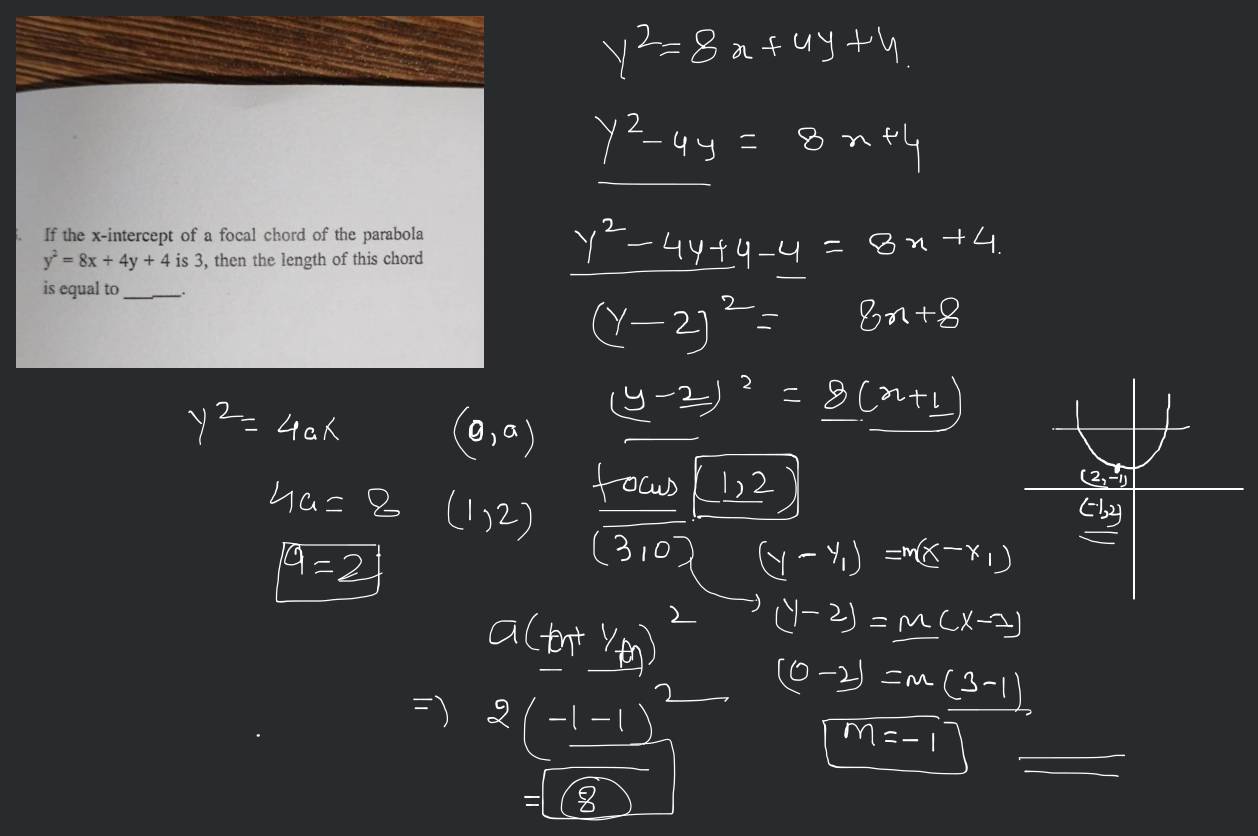 If the x-intercept of a focal chord of the parabola
y² = 8x + 4y + 4 is 3, then the length of this chord
is equal to ______.
y²=8x+4y+4.
y²-4y = 8x+4
y²-4y+4-4 = 8x+4.
(y-2)² = 8x+8
(y-2)² = 8(x+1)
y²=4ax (0,a)
4a=8 (1,2)
a=2
focus (1,2)
(3,0)
(y-y₁) =m(x-x₁)
(y-2) = m(x-1)
(0-2) =m(3-1)
m=-1
=) 2(-1-1)²
= 8
(2,-1)
(-1,2)